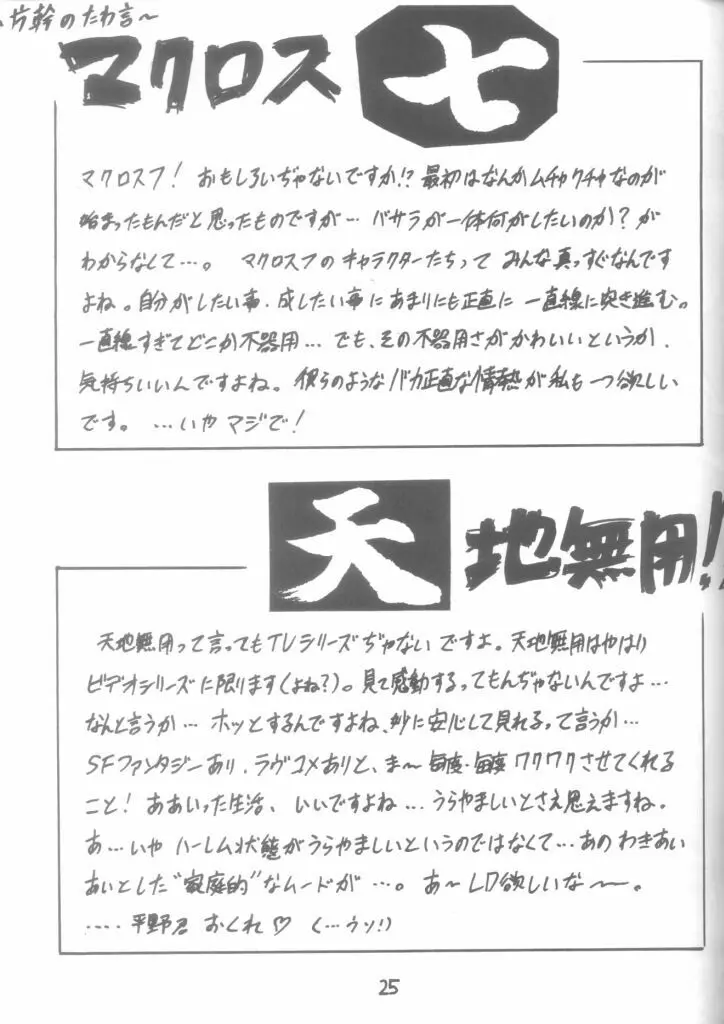 片幹のたわ言〜
マクロス七
マクロス7! おもしろいぢゃないですか!? 最初はなんかムチャクチャなのが
始まったもんだと思ったものですが… バサラが一体何がしたいのか?が
わからなくて…。 マクロス7のキャラクターたちって みんな真っすぐなんです
よね。自分がしたい事、成したい事にあまりにも正直に 一直線に突き進む。
一直線すぎてどこか不器用… でも、その不器用さがかわいいというか、
気持ちいいんですよね。彼らのようなバカ正直な情熱が私も一つ欲しい
です。 …いやマジで!
天地無用!
天地無用って言ってもTVシリーズぢゃないですよ。天地無用はやはり
ビデオシリーズに限ります(よね?)。見て感動するってもんぢゃないんですよ…
なんと言うか… ホッとするんですよね、妙に安心して見れるって言うか…
SFファンタジーあり、ラヴコメありと、ま〜毎度・毎度ワクワクさせてくれる
こと! ああいった生活、いいですよね… うらやましいとさえ思えますね。
あ…いや ハーレム状態がうらやましいというのではなくて…あの わきあい
あいとした"家庭的"なムードが …。 あ〜LD欲しいな〜。
…‥平野君 おくれ♡ (…ウソ!)
25